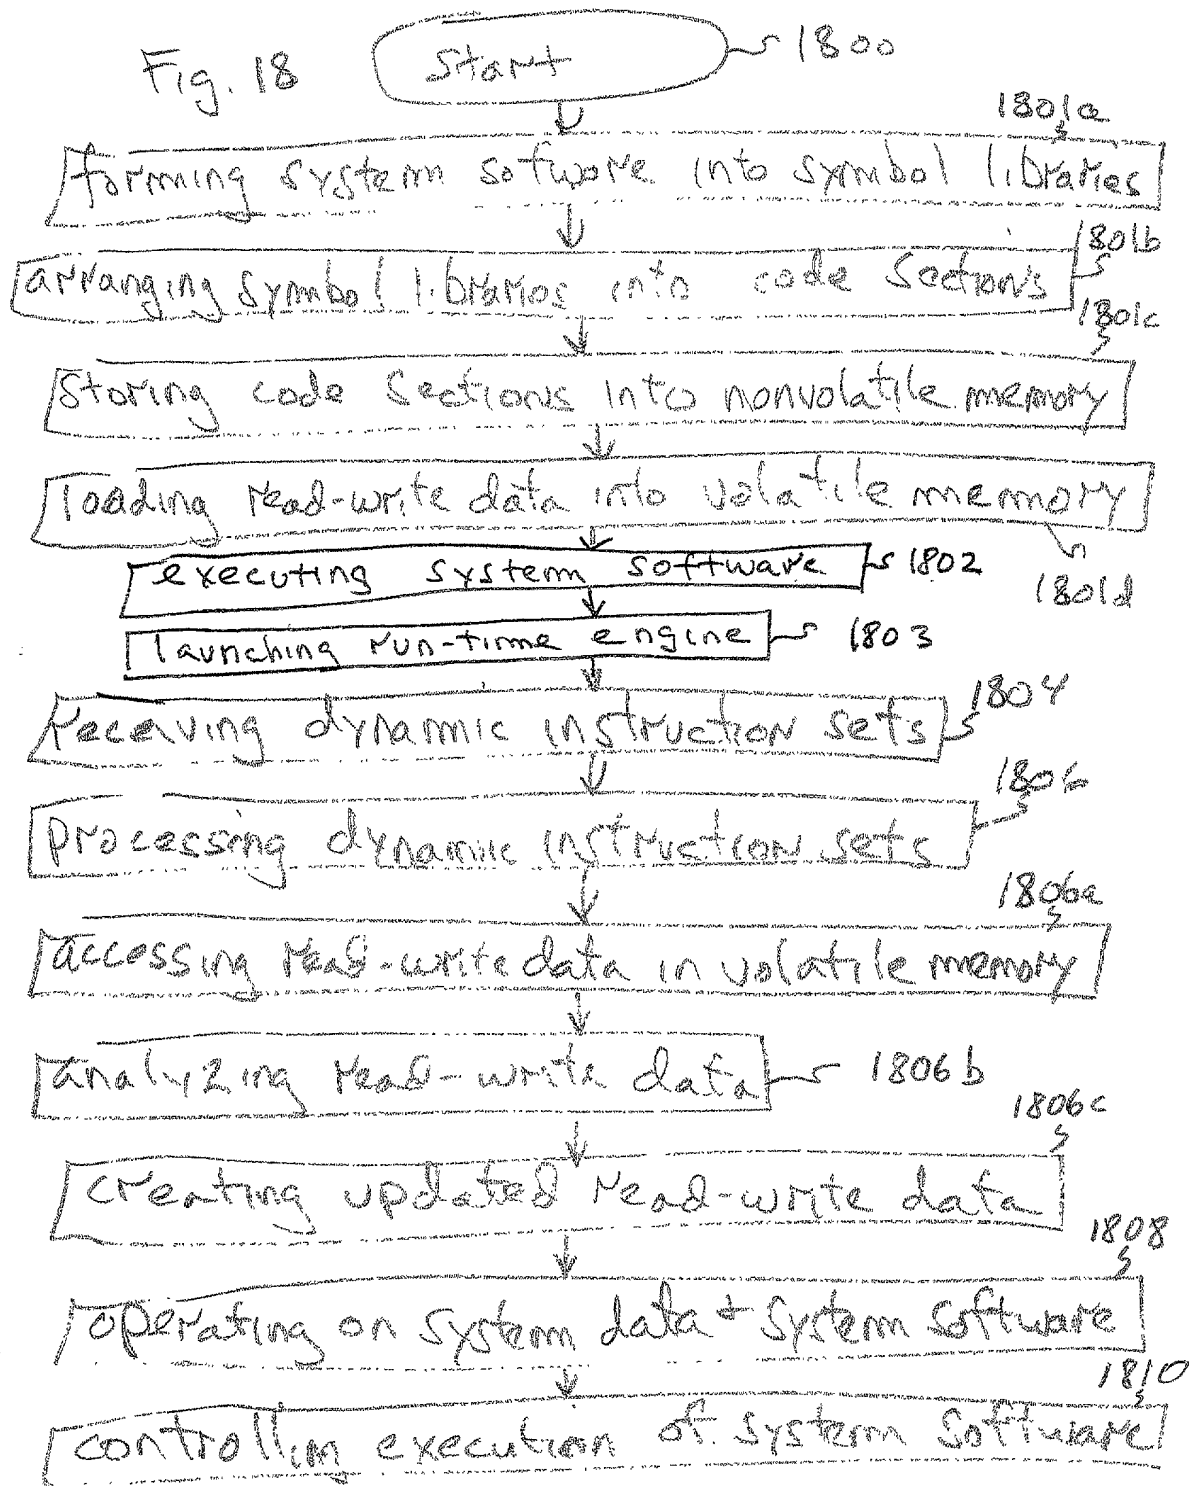 Fig. 18
Start 1800
1801a
forming system software into symbol libraries
1801b
arranging symbol libraries into code sections
1801c
storing code sections into nonvolatile memory
loading read-write data into volatile memory
1801d
executing system software 1802
launching run-time engine 1803
1804
receiving dynamic instruction sets
1806
processing dynamic instruction sets
1806a
accessing read-write data in volatile memory
analyzing read-write data 1806b
1806c
creating updated read-write data
1808
operating on system data + system software
1810
controllim execution of system software